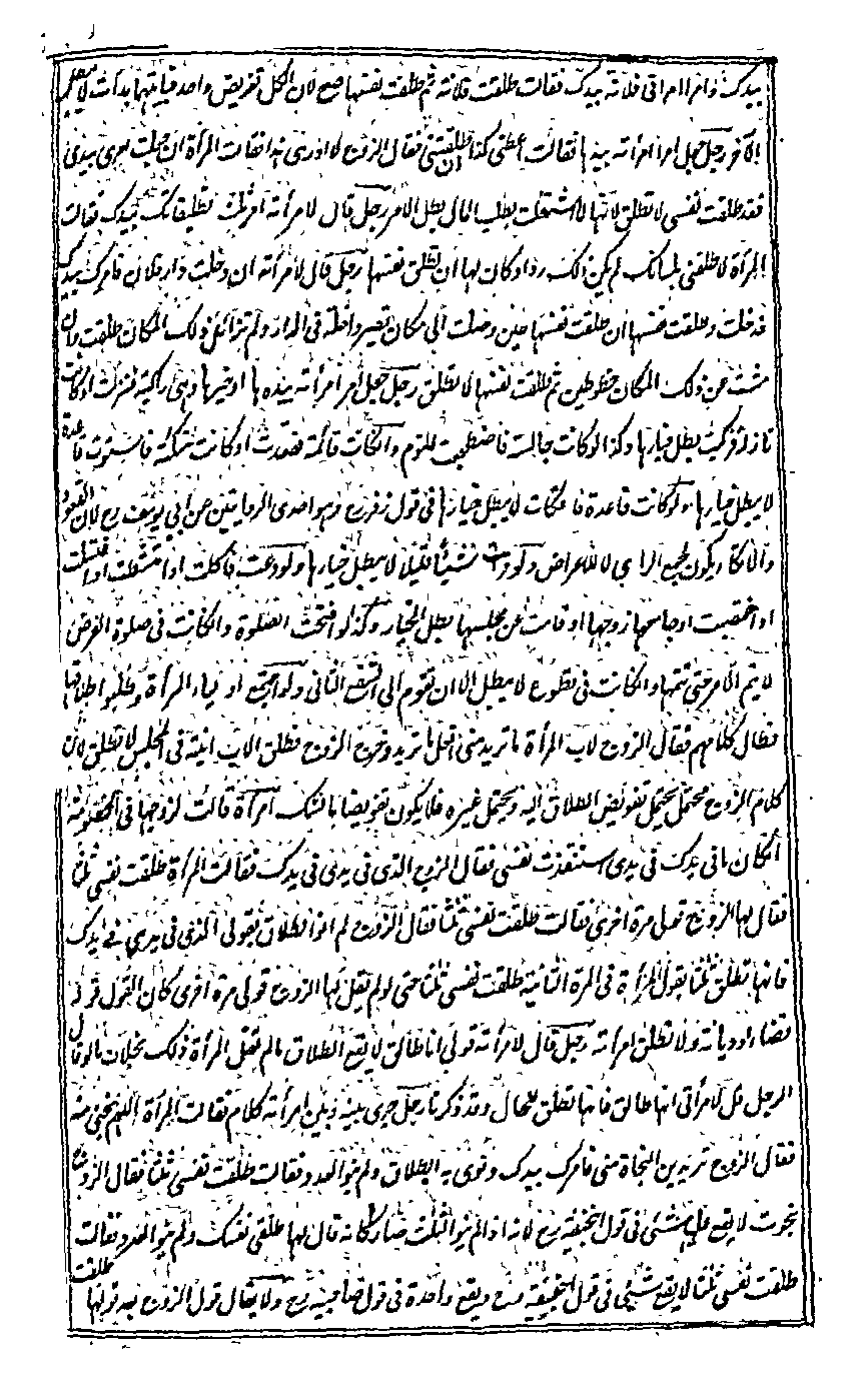 بيدك وامر امراتي فلانة بيدك فقالت طلقت فلانة ثم طلقت نفسها صح لان الكل تفويض واحد فبايتهما بدأت لا يبطل
الآخر رجل جعل امر امرأته بيدها فقالت اعطني كذا ان طلقتني فقال الزوج لا ادري هذا فقالت المرأة ان جعلت امري بيدي
فقد طلقت نفسي لا تطلق لانها لما اشتغلت بطلب المال بطل الامر رجل قال لامرأته امر ثلث تطليقاتك بيدك فقالت
المرأة لا تطلقني بلسانك لم يكن ذلك ردا وكان لها ان تطلق نفسها رجل قال لامرأته ان دخلت دار فلان فامرك بيدك
فدخلت وطلقت نفسها ان طلقت نفسها حين وصلت الى مكان تصير داخلة في الدار ولم تزائل ذلك المكان طلقت وان
مشت عن ذلك المكان خطوتين ثم طلقت نفسها لا تطلق رجل جعل امر امرأته بيدها او خيرها وهي راكبة فنزلت او كانت
نازلة فركبت بطل خيارها وكذا لو كانت جالسة فاضطجعت للنوم وان كانت قائمة فقعدت او كانت متكئة فاستوت قاعدة
لا يبطل خيارها ولو كانت قاعدة فاتكأت لا يبطل خيارها في قول زفر رح وهو احدى الروايتين عن ابي يوسف رح لان القعود
والاتكاء يكون لجمع الراي لا للاعراض ولو شيئا قليلا لا يبطل خيارها ولو دعت فاكلت او امتشطت او اغتسلت
او اختضبت او جامعها زوجها او قامت من مجلسها بطل الخيار وكذا لو افتتحت الصلوة وان كانت في صلوة الفرض
لا يتم الامر حتى تتمها وان كانت في تطوع لا يبطل الا ان تقوم الى الشفع الثاني ولو اجتمع اولياء المرأة وطلبوا طلاقها
فطال كلامهم فقال الزوج لاب المرأة ما تريد مني افعل ما تريد وخرج الزوج فطلق الاب ابنته في المجلس لا تطلق لان
كلام الزوج محتمل يحتمل تفويض الطلاق اليه ويحتمل غيره فلا يكون تفويضا بالشك امرأة قالت لزوجها في الخصومة
ان كان ما في يدك في يدي استنقذت نفسي فقال الزوج الذي في يدي في يدك فقالت المرأة طلقت نفسي ثلثا
فقال لها الزوج قولي مرة اخرى فقالت طلقت نفسي ثلثا فقال الزوج لم انو الطلاق بقولي الذي في يدي في يدك
فانها تطلق ثلثا بقول المرأة في المرة الثانية طلقت نفسي ثلثا حتى لو لم يقل لها الزوج قولي مرة اخرى كان القول قوله
قضاء وديانة ولا تطلق امرأته رجل قال لامرأته قولي انا طالق لا يقع الطلاق ما لم تقل المرأة ذلك بخلاف ما لو قال
الرجل قل لامرأتي انها طالق فانها تطلق للحال وقد ذكرنا رجل جرى بينه وبين امرأته كلام فقالت المرأة اللهم نجني منه
فقال الزوج تريدين النجاة مني فامرك بيدك ونوى به الطلاق ولم ينو العدد فقالت طلقت نفسي ثلثا فقال الزوج
نجوت لا يقع عليها شيئ في قول ابيحنيفة رح لانه اذا لم ينو الثلث صار كانه قال لها طلقي نفسك ولم ينو العدد فقالت
طلقت نفسي ثلثا لا يقع شيئ في قول ابيحنيفة رح ويقع واحدة في قول صاحبيه رح ولا يقال قول الزوج بعد قولها طلقت